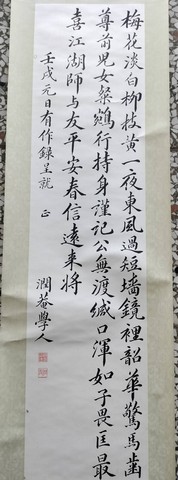 梅花淡白柳枝黃一夜東風過短墻鏡裡韶華驚馬齒
尊前兒女粲鵷行持身謹記公無渡緘口渾如子畏匡最
喜江湖師与友平安春信遠來將
壬戌元日有作錄呈就 正
潤菴學人